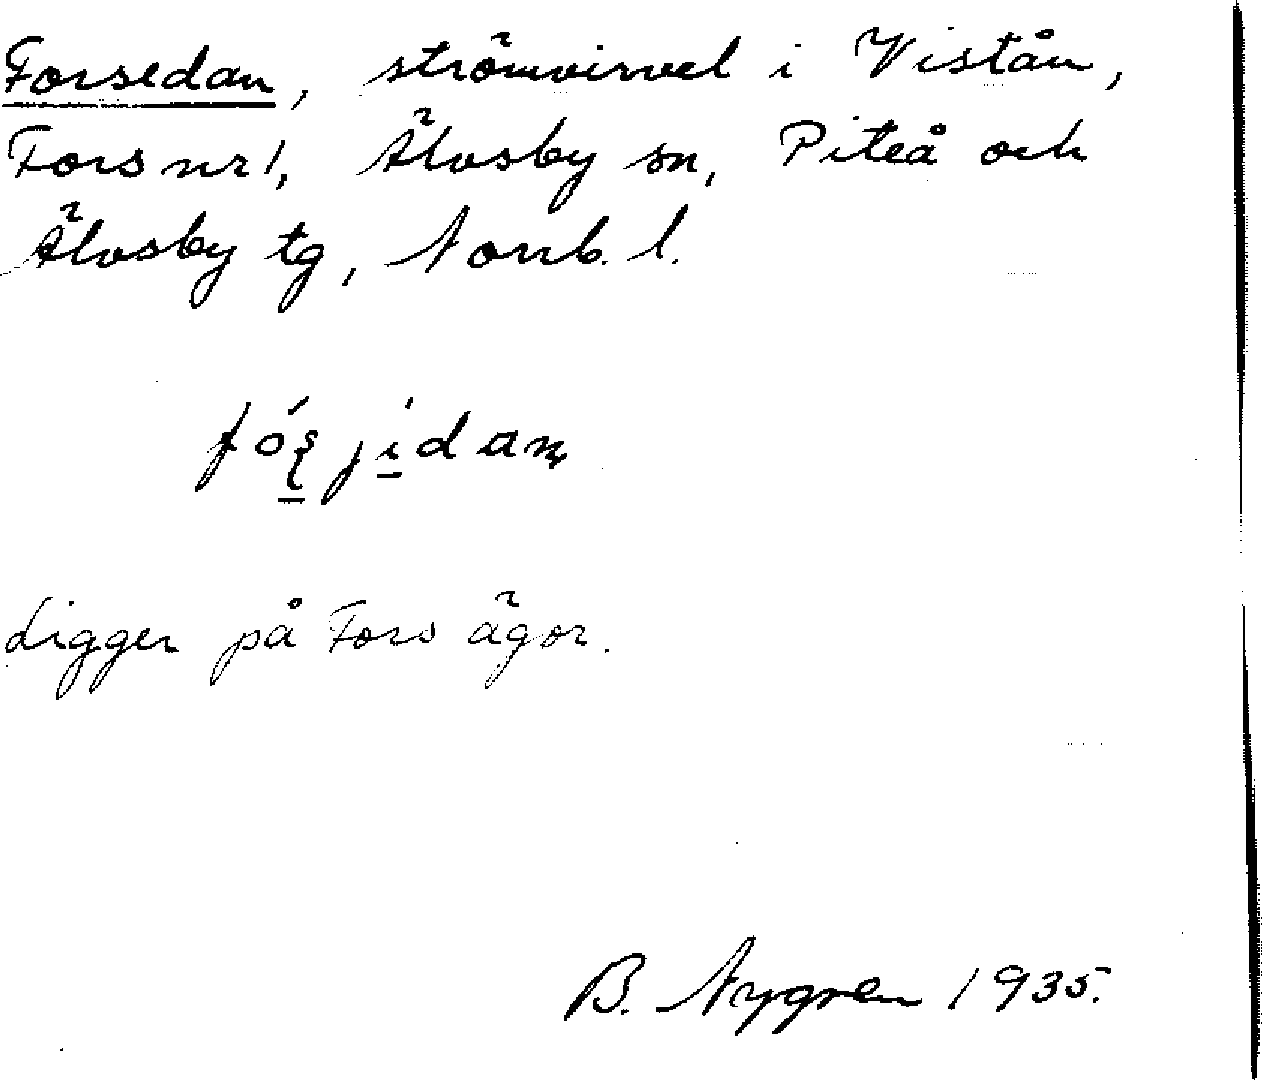 Forsedan, strömvirvel i Vistån,
Fors nr 1, Älvsby sn, Piteå och
Älvsby tg, Norrb. l.
Ligger på Fors ägor.
B. Nygren 1935.